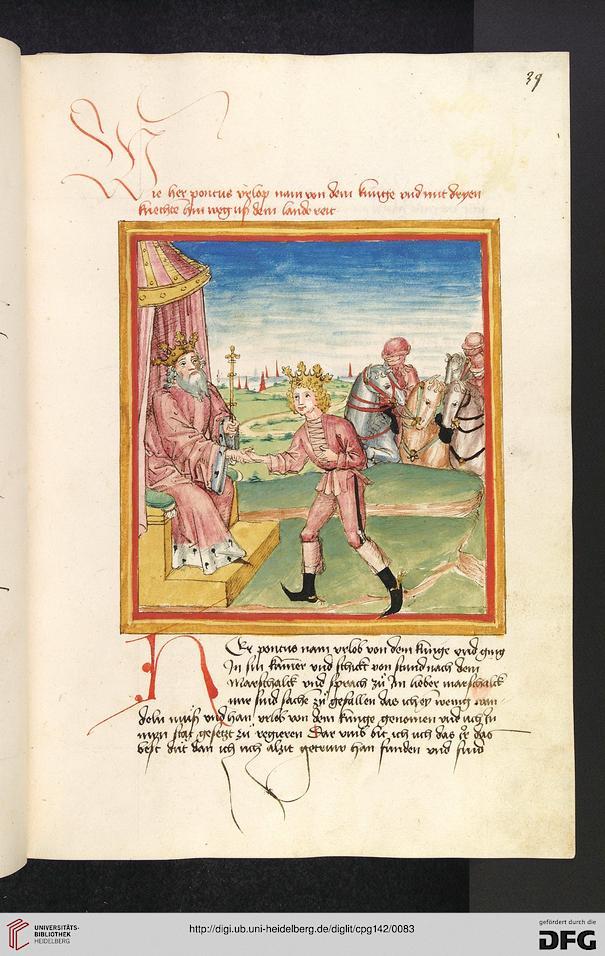 39
Wie her pontus vrlop nam von dem kunige vnd mit dryen
knechten hin weg vß dem lande reit
Her pontus nam vrlob von dem kunge vnd ging
In sin kamer vnd schickt von stund nach dem
Marschalck vnd sprach zu Im lieber marschalck
mir sind sache zu gefallen das ich ey wenig wan-
deln muß vnd han vrlob von dem kunge genomen vnd uch In
myn stat gesetzt zu regieren Dar vmb bit ich uch das Ir das
best dut dan ich uch alzit getruw han funden vnd sind
UNIVERSITÄTS-
BIBLIOTHEK
HEIDELBERG
http://digi.ub.uni-heidelberg.de/diglit/cpg142/0083
gefördert durch die
DFG